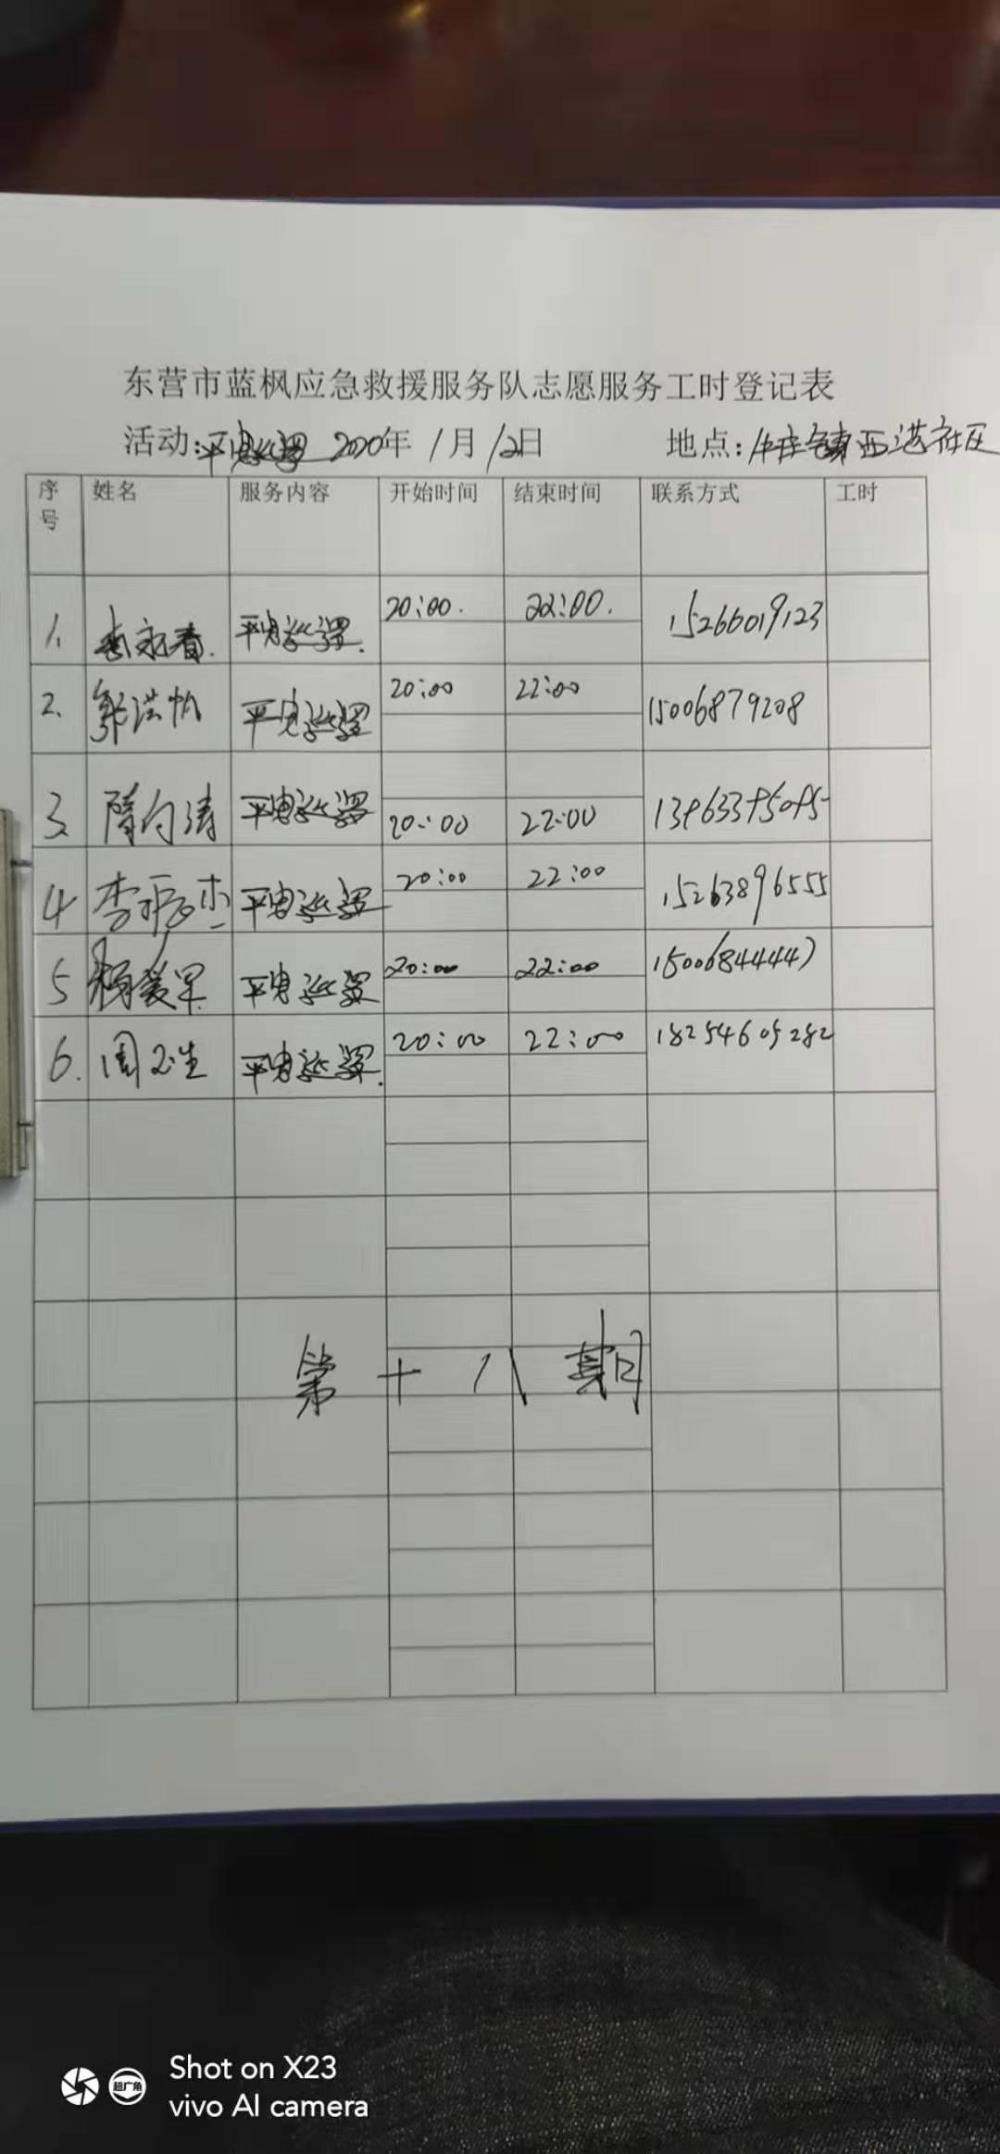 东营市蓝枫应急救援服务队志愿服务工时登记表
活动: 平安巡逻 2020年 1月 12日 地点: 牛庄镇西港社区
序号 姓名 服务内容 开始时间 结束时间 联系方式 工时
1. 李永春. 平安巡逻. 20:00. 22:00. 15266019123
2. 郭洪帆 平安巡逻 20:00 22:00 15006879208
3. 隋向涛 平安巡逻 20:00 22:00
4 李振杰 平安巡逻 20:00 22:00 15263896555
5 杨爱军 平安巡逻 20:00 22:00 15006844447
6. 周玉生 平安巡逻. 20:00 22:00 18254605282
第十八期
超广角
Shot on X23
vivo AI camera